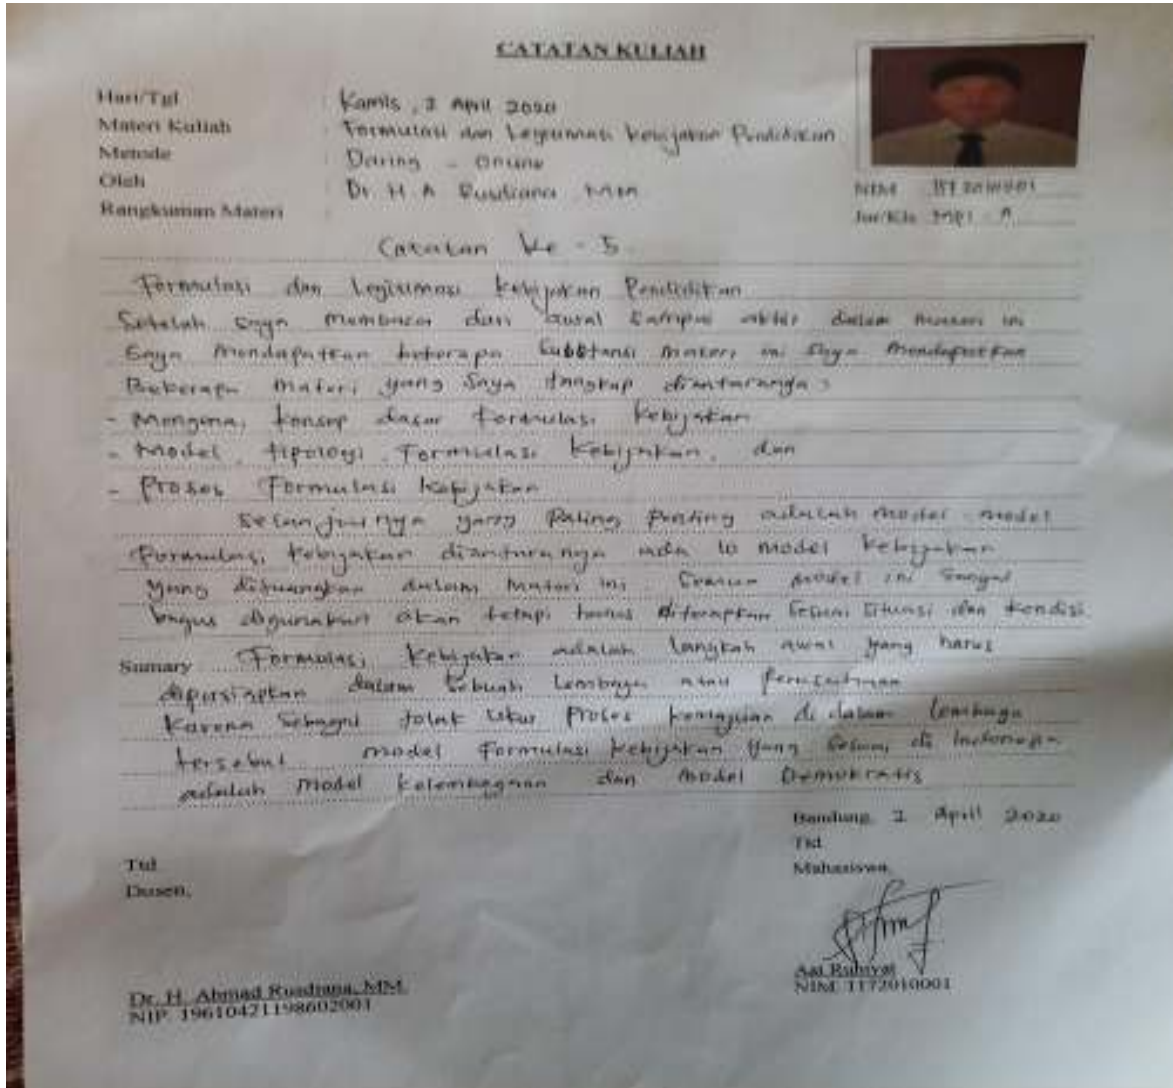 CATATAN KULIAH
Hari/Tgl : Kamis, 2 April 2020
Materi Kuliah : Formulasi dan Legitimasi Kebijakan Pendidikan
Metode : Daring - Online
Oleh : Dr. H. A Rusdiana, MM
Rangkuman Materi :
NIM 1172010001
Jur/Kls MPI - A
Catatan Ke - 5
Formulasi dan Legitimasi Kebijakan Pendidikan
Setelah saya membaca dari awal sampai akhir dalam materi ini
Saya mendapatkan beberapa Substansi materi ini Saya mendapatkan
Beberapa materi yang Saya tangkap diantaranya :
- Mengenai konsep dasar Formulasi Kebijakan
- Model, tipologi Formulasi Kebijakan, dan
- Proses Formulasi Kebijakan
Selanjutnya yang Paling Penting adalah model-model
Formulasi Kebijakan diantaranya ada 10 model Kebijakan
yang dituangkan dalam materi ini. Semua model ini Sangat
bagus digunakan akan tetapi harus diterapkan Sesuai Situasi dan Kondisi
Sumary Formulasi Kebijakan adalah langkah awal yang harus
dipersiapkan dalam Sebuah Lembaga atau Perusahaan
Karena Sebagai tolak Ukur Proses kemajuan di dalam lembaga
tersebut model Formulasi Kebijakan yang Sesuai di Indonesia
adalah model Kelembagaan dan model Demokratis
Bandung, 2 April 2020
Ttd
Mahasiswa,
Ttd
Dosen,
Aat Ruhiyat
NIM. 1172010001
Dr. H. Ahmad Rusdiana, MM.
NIP. 196104211986021001